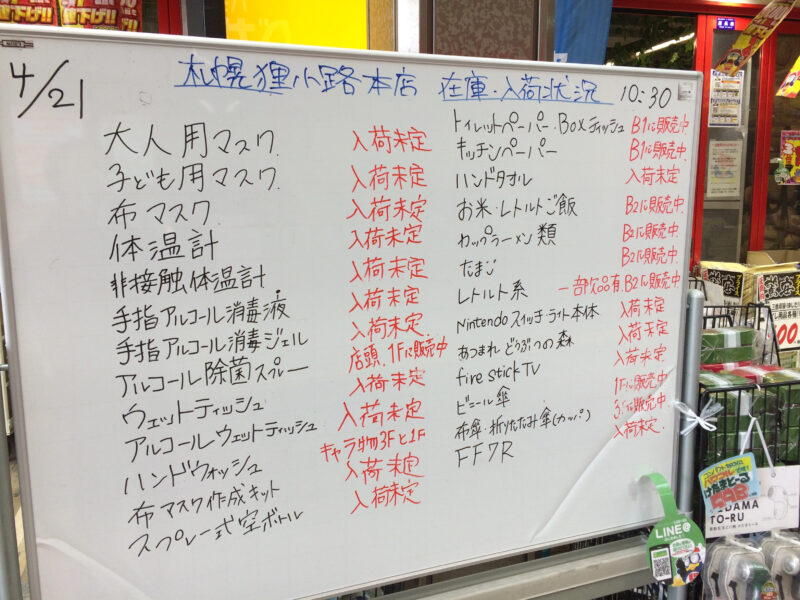 4/21 札幌狸小路本店 在庫・入荷状況 10:30
大人用マスク 入荷未定
子ども用マスク 入荷未定
布マスク 入荷未定
体温計 入荷未定
非接触体温計 入荷未定
手指アルコール消毒液 入荷未定
手指アルコール消毒ジェル 入荷未定
アルコール除菌スプレー 店頭、1Fに販売中
ウェットティッシュ 入荷未定
アルコールウェットティッシュ 入荷未定
ハンドウォッシュ キャラ物3Fと1F
布マスク作成キット 入荷未定
スプレー式空ボトル 入荷未定
トイレットペーパー・Boxティッシュ B1に販売中
キッチンペーパー B1に販売中
ハンドタオル 入荷未定
お米・レトルトご飯 B2に販売中
カップラーメン類 B2に販売中
たまご B2に販売中
レトルト系 一部欠品有 B2に販売中
Nintendoスイッチ・ライト本体 入荷未定
あつまれどうぶつの森 入荷未定
fire stick TV 入荷未定
ビニール傘 1Fに販売中
布傘・折りたたみ傘(カッパ) 3Fに販売中
FF7R 入荷未定
LINE@
TO-RU